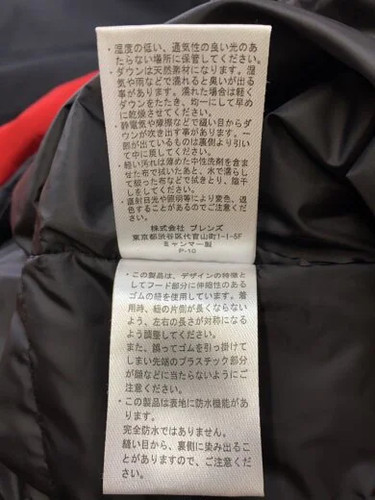 ・湿度の低い、通気性の良い光のあ
たらない場所に保管してください。
・ダウンは天然素材になります。湿
気や雨などで濡れると臭いが出る
事があります。濡れた場合は軽く
ダウンをたたき、均一にして早め
に乾燥させてください。
・静電気や摩擦などで縫い目からダ
ウンが吹き出す事があります。一
部が出ているものは裏側より引い
て中に戻してください。
・軽い汚れは薄めた中性洗剤を含ま
せた布で拭いたあと、水で濡らし
て絞った布などで拭きとり、陰干
しをしてください。
・直射日光や照明等により変色、退
色することがあるのでご注意くだ
さい。
株式会社 ブレンズ
東京都渋谷区代官山町1-1-5F
ミャンマー製
P-10
・この製品は、デザインの特徴と
してフード部分に伸縮性のある
ゴムの紐を使用しています。着
用時、紐の片側が長くならない
よう、左右の長さが対称になる
よう調整してください。
また、誤ってゴムを引っ掛けて
しまい先端のプラスチック部分
が顔などに当たらないようにご
注意ください。
・この製品は表地に防水機能があ
ります。
完全防水ではありません。
縫い目から、裏側に染み出るこ
とがありますので、ご注意くだ
さい。